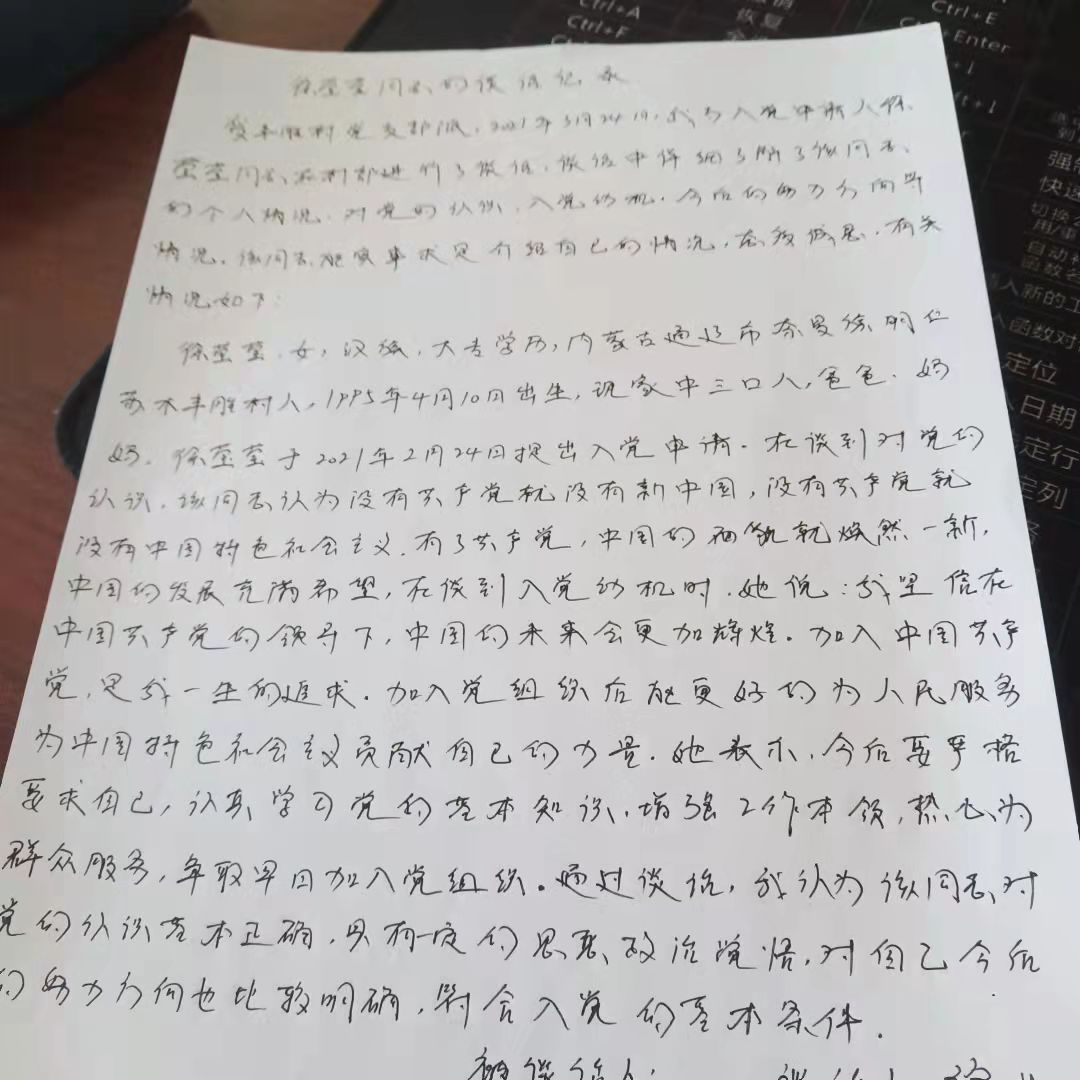 Ctrl+A
Ctrl+F
恢复
Ctrl+E
Ctrl+Enter
强制
快速
切换
用/重
自动
函数名
插入新的工
入函数对
定位
入日期
定行
定列
徐莹莹同志的谈话记录
受丰胜村党支部派,2021年3月24日,我与入党申请人徐
莹莹同志在村部进行了谈话,谈话中详细了解了该同志
的个人情况,对党的认识,入党动机,今后的努力方向等
情况。该同志能实事求是介绍自己的情况,有关
情况如下:
徐莹莹,女,汉族,大专学历,内蒙古通辽市奈曼旗明仁
苏木丰胜村人,1995年4月10日出生,现家中三口人,爸爸、妈
妈。徐莹莹于2021年2月24日提出入党申请。在谈到对党的
认识,该同志认为没有共产党就没有新中国,没有共产党就
没有中国特色社会主义,有了共产党,中国的面貌就焕然一新,
中国的发展充满希望,在谈到入党动机时,她说:我坚信在
中国共产党的领导下,中国的未来会更加辉煌。加入中国共产
党,是我一生的追求。加入党组织后能更好的为人民服务
为中国特色社会主义贡献自己的力量。她表示,今后要严格
要求自己,认真学习党的基本知识,增强工作本领,热心为
群众服务,争取早日加入党组织。通过谈话,我认为该同志对
党的认识基本正确,具有一定的思想政治觉悟,对自己今后
的努力方向也比较明确,符合入党的基本条件.
被谈话人: